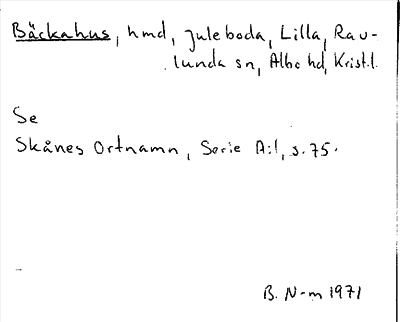 Bäckahus, hmd, Juleboda, Lilla, Rav-
lunda sn, Albo hd, Krist.l.
Se
Skånes Ortnamn, Serie A:1, s. 75.
B. N-m 1971